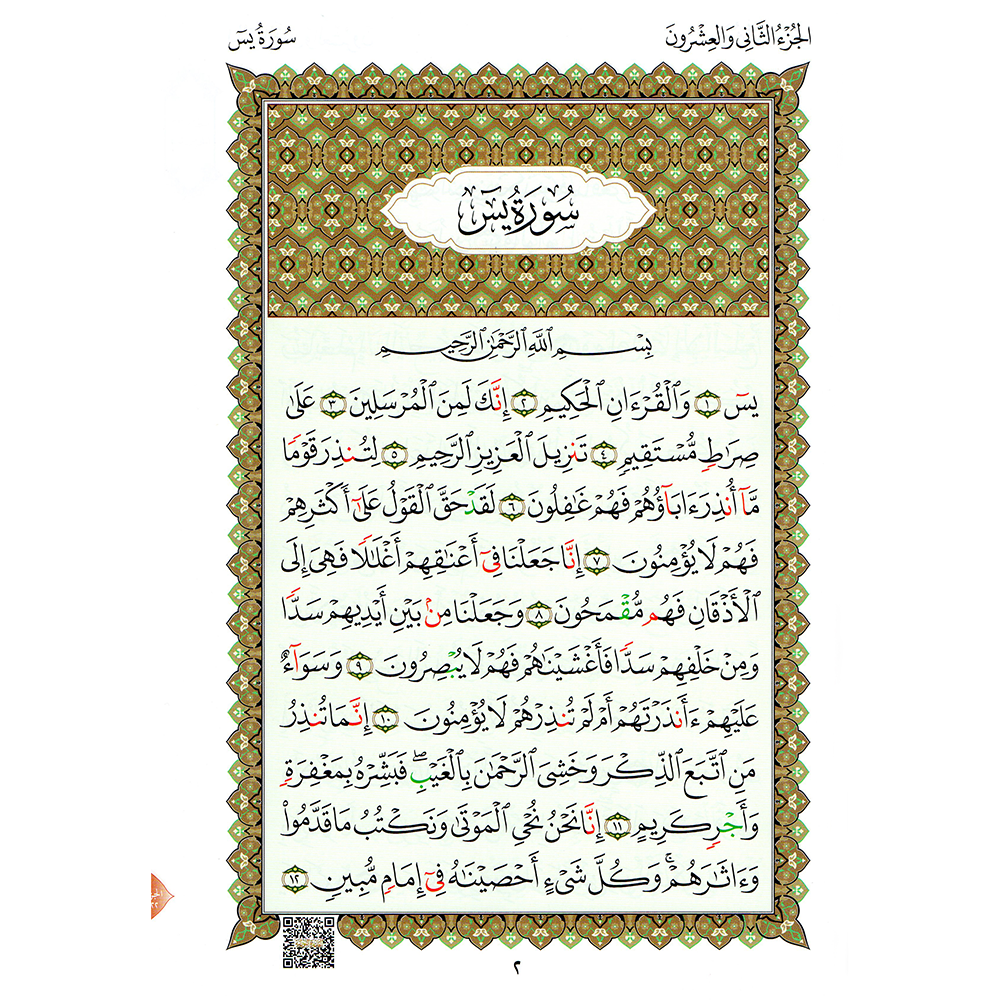 الجُزْءُ الثَّانِي وَالعِشْرُونَ
سُورَةُ يسٓ
سُورَةُ يسٓ
بِسْمِ ٱللَّهِ ٱلرَّحْمَٰنِ ٱلرَّحِيمِ
يسٓ ١ وَٱلْقُرْءَانِ ٱلْحَكِيمِ ٢ إِنَّكَ لَمِنَ ٱلْمُرْسَلِينَ ٣ عَلَىٰ
صِرَٰطٍ مُّسْتَقِيمٍ ٤ تَنزِيلَ ٱلْعَزِيزِ ٱلرَّحِيمِ ٥ لِتُنذِرَ قَوْمًا
مَّآ أُنذِرَ ءَابَآؤُهُمْ فَهُمْ غَٰفِلُونَ ٦ لَقَدْ حَقَّ ٱلْقَوْلُ عَلَىٰٓ أَكْثَرِهِمْ
فَهُمْ لَا يُؤْمِنُونَ ٧ إِنَّا جَعَلْنَا فِىٓ أَعْنَٰقِهِمْ أَغْلَٰلًا فَهِىَ إِلَى
ٱلْأَذْقَانِ فَهُم مُّقْمَحُونَ ٨ وَجَعَلْنَا مِنۢ بَيْنِ أَيْدِيهِمْ سَدًّا
وَمِنْ خَلْفِهِمْ سَدًّا فَأَغْشَيْنَٰهُمْ فَهُمْ لَا يُبْصِرُونَ ٩ وَسَوَآءٌ
عَلَيْهِمْ ءَأَنذَرْتَهُمْ أَمْ لَمْ تُنذِرْهُمْ لَا يُؤْمِنُونَ ١٠ إِنَّمَا تُنذِرُ
مَنِ ٱتَّبَعَ ٱلذِّكْرَ وَخَشِىَ ٱلرَّحْمَٰنَ بِٱلْغَيْبِۖ فَبَشِّرْهُ بِمَغْفِرَةٍ
وَأَجْرٍ كَرِيمٍ ١١ إِنَّا نَحْنُ نُحْىِ ٱلْمَوْتَىٰ وَنَكْتُبُ مَا قَدَّمُوا۟
وَءَاثَٰرَهُمْۚ وَكُلَّ شَىْءٍ أَحْصَيْنَٰهُ فِىٓ إِمَامٍ مُّبِينٍ ١٢
٢